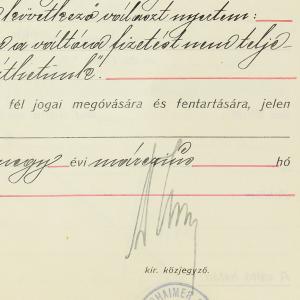 következő választ nyertem:
a váltóra fizetést nem telje-
síthetünk".
fél jogai megóvására és fentartására, jelen
négy évi március hó
kir. közjegyző.
HAIMER